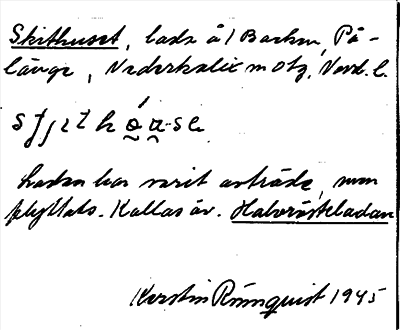 Skithuset, lada å / Backen, På-
länge, Nederkalix m Otg, Nord. l.
ladan har varit avträde, men
flyttats. Kallas äv. Halvvästeladan
Kerstin Rönnquist 1945